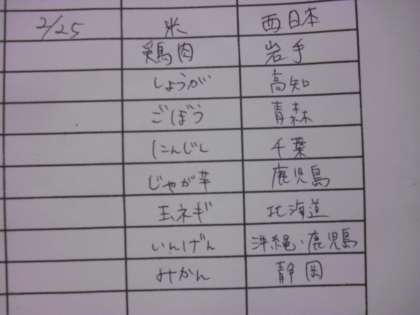 2/25 米 西日本
鶏肉 岩手
しょうが 高知
ごぼう 青森
にんじん 千葉
じゃが芋 鹿児島
玉ネギ 北海道
いんげん 沖縄・鹿児島
みかん 静岡